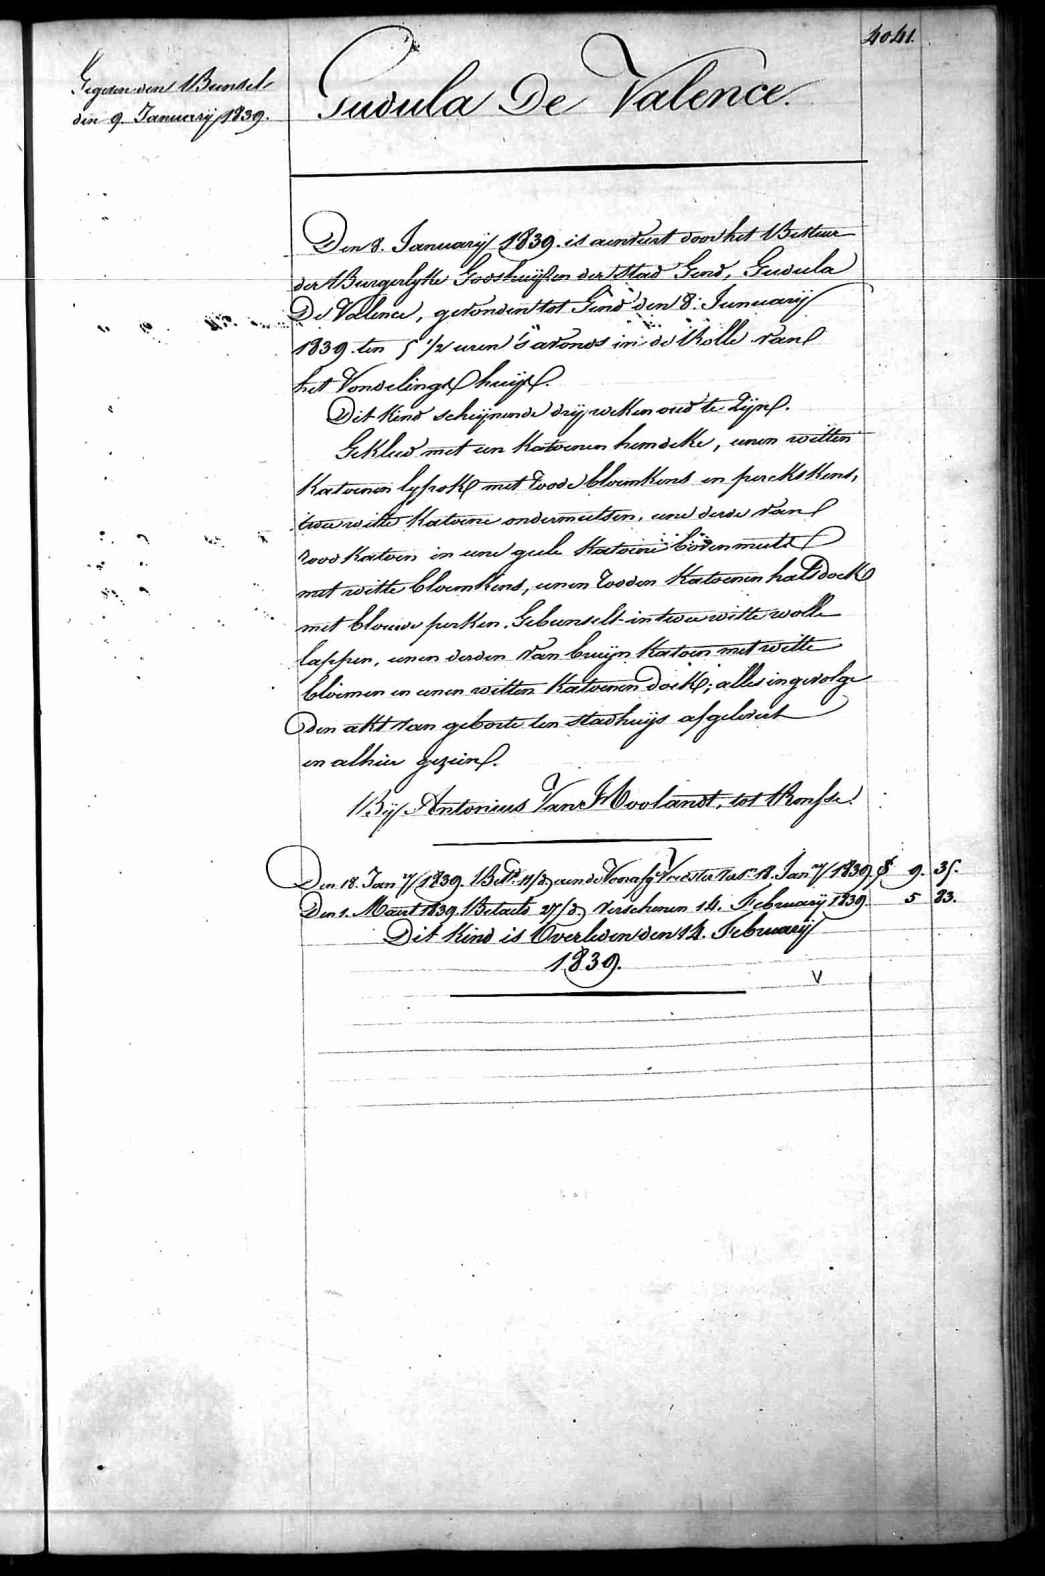 4041.
Gegeven den Bunsel
den 9. Januarij 1839.
Gudula De Valence.
Den 8. Januarij 1839. is aenveirt door het Bestuur
der Burgerlyke Godshuijzen der Stad Gend, Gudula
De Valence, gevonden tot Gend den 8. Januarij
1839. ten 5 1/2 uren 's avonds in de Rolle van
het Vondelings huijs.
Dit Kind scheijnende drij weken oud te zijn.
Gekleed met een Katoenen hemdeke, eenen witten
Katoenen lyfrok met roode bloemkens en perckskens,
twee witte Katoene ondermutsen, eene derde van
rood Katoen en eene geele Katoene bovenmuts
met witte bloemkens, eenen rooden Katoenen halsdoek
met blouwe perken. Gebunselt in twee witte wolle
lappen, eenen derden van bruijn Katoen met witte
bloemen en eenen witten Katoenen doek; alles ingevolge
den akt van geborte ten stadhuijs afgeleverd
en alhier gezien.
Bij Antonius Van Moolandt, tot Ronsse.
Den 18. Jan.rij 1839. Bet.d 11/d aen de Voorsz 18. Jan.rij 1839 9. 35.
Den 1. Maert 1839. Betaeld 27/d verschenen 14. Februarij 1839. 5 83.
Dit Kind is Overleden den 14. Februarij
1839.